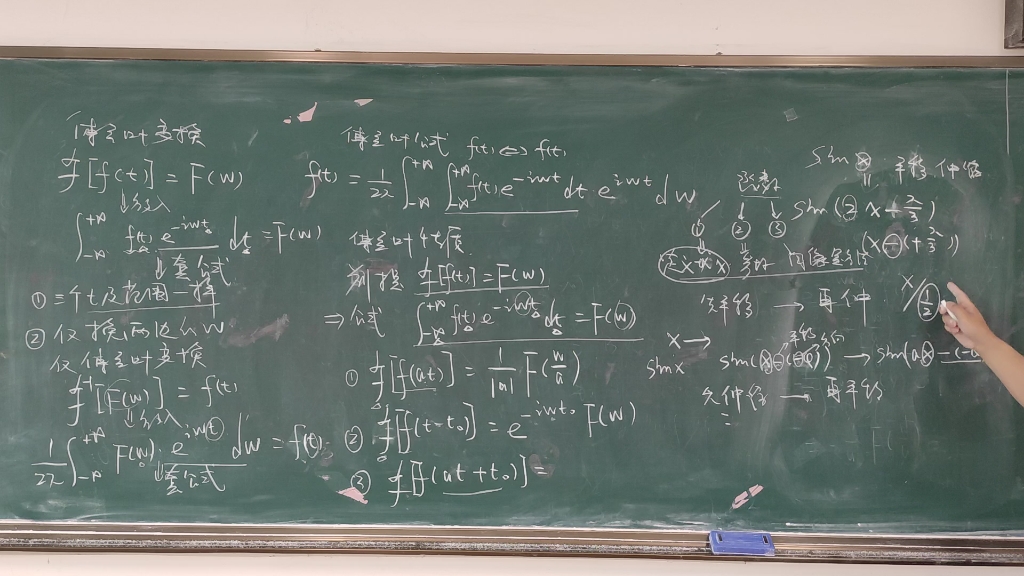 傅立叶变换
𝓕[f(t)] = F(w)
↓代入
∫_{-∞}^{+∞} f(t) e^{-iwt} dt = F(w)
↓套公式
① 三个t及范围一样
② 仅换两边的w
仅傅立叶变换
𝓕⁻¹[F(w)] = f(t)
↓代入
1/2π ∫_{-∞}^{+∞} F(w) e^{iwt} dw = f(t)
↓套公式
傅立叶公式 f(t) ⇔ f(t)
f(t) = 1/2π ∫_{-∞}^{+∞} ∫_{-∞}^{+∞} f(t) e^{-iwt} dt e^{iwt} dw
傅立叶性质
前提 𝓕[f(t)] = F(w)
⇒ 公式 ∫_{-∞}^{+∞} f(t) e^{-iwt} dt = F(w)
① 𝓕[f(at)] = 1/|a| F(w/a)
② 𝓕[f(t-t₀)] = e^{-iwt₀} F(w)
③ 𝓕[f(at+t₀)] =
sin 平移 伸缩
函数
① ② ③
sin(2x + π/3)
先平移 → 再伸
x →
sinx
→ sin(a
先伸缩 → 再平移